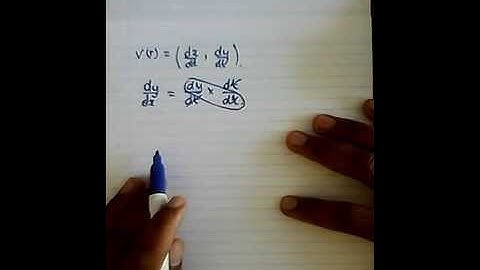 v(t) = (dx/dt, dy/dt).
dy/dx = dy/dt × dt/dx